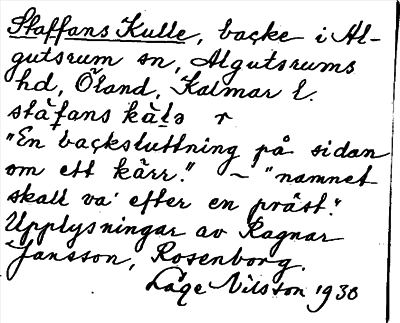 Staffans Kulle, backe i Al-
gutsrum sn, Algutsrums
hd, Öland, Kalmar l.
"En backsluttning på sidan
om ett kärr." — "namnet
skall va' efter en präst."
Upplysningar av Ragnar
Jansson, Rosenborg.
Låge Nilsson 1938